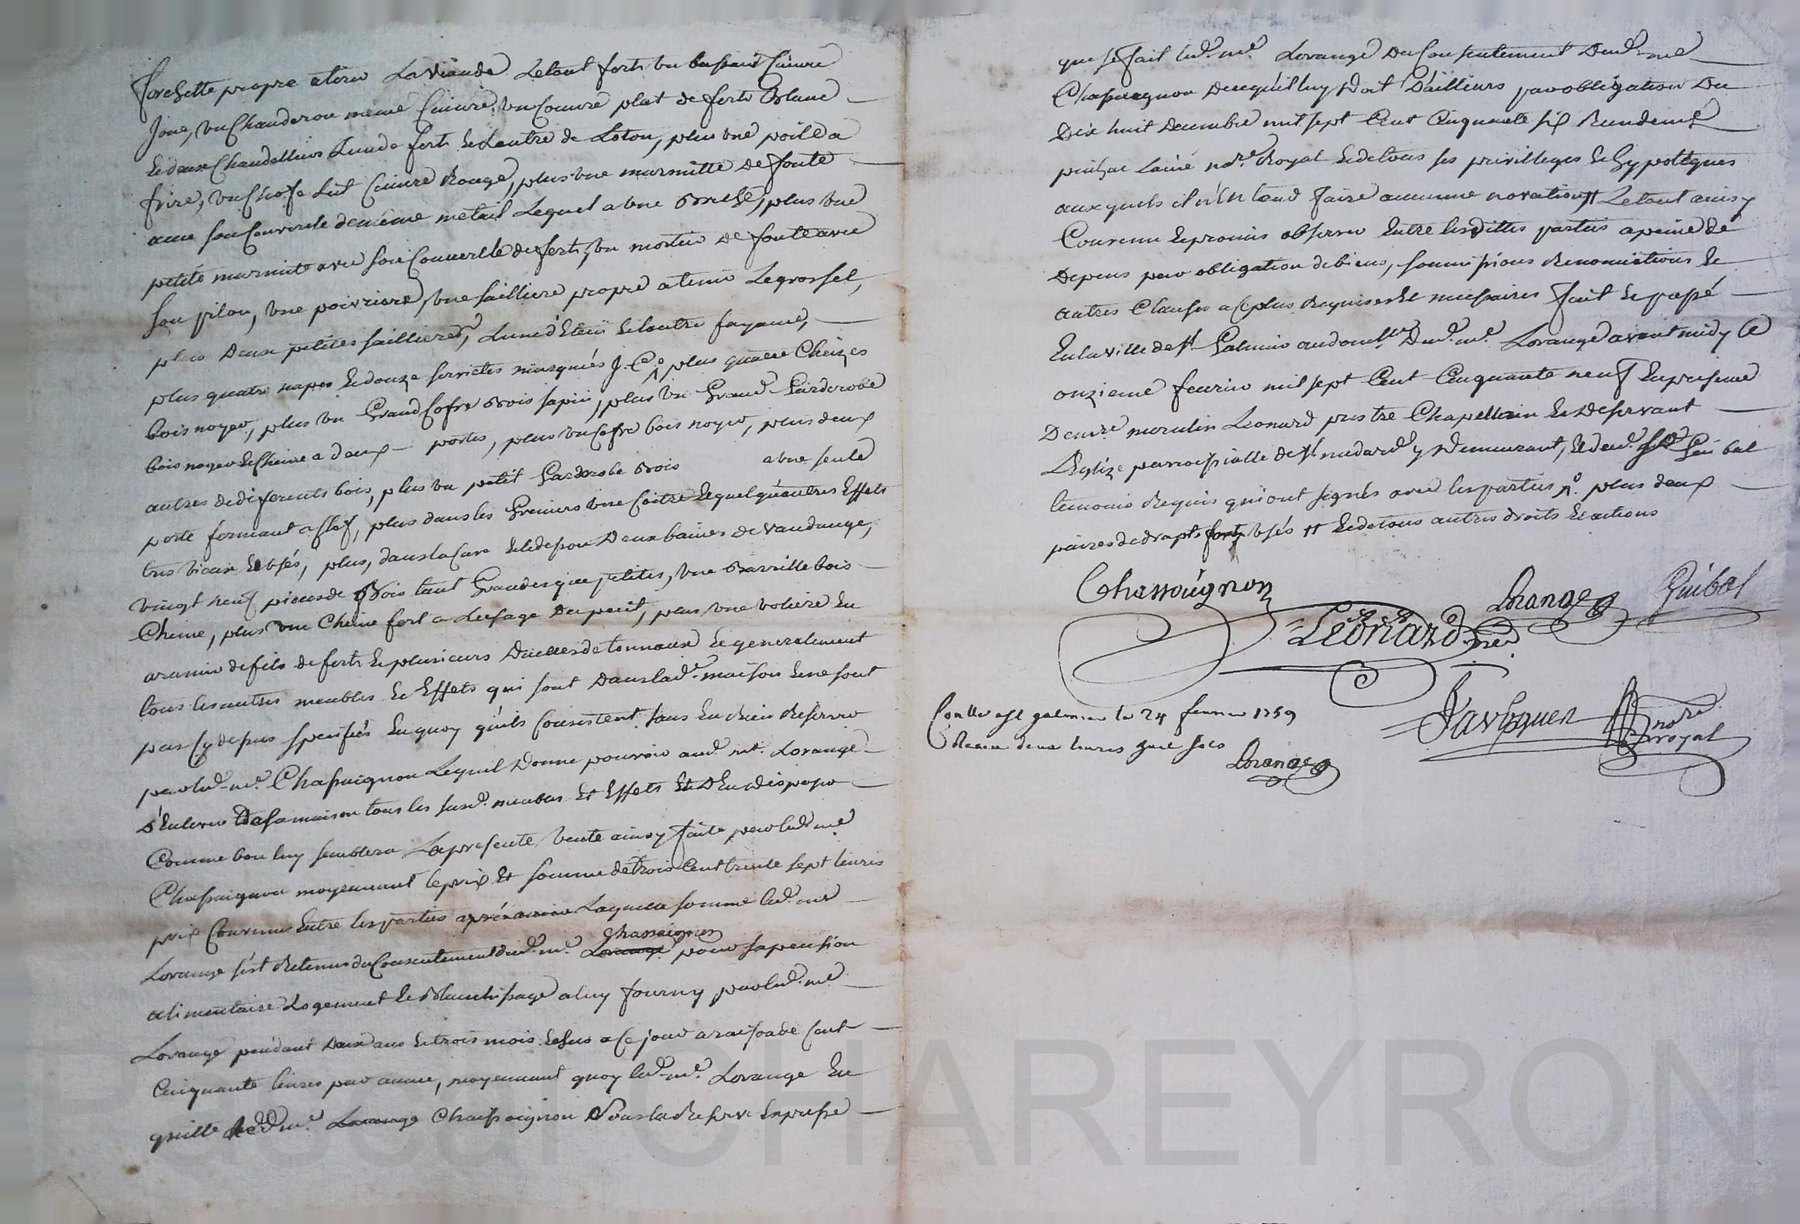 forchette propre a tirer La Viande Le tout fert, un bassind Cuivre
Jone, un Chauderon meme Cuivre, un Couvre plat de fert Blanc
Et deux Chandelliers Lun de fert Et Lautre de Loton, plus une poile a
frire, un Chofe Lit Cuivre Rouge, plus une marmitte de fonte
avec son Couvercle de meme metail Lequel a une Breche, plus une
petite marmite avec son Couvercle de fert, un mortier de fonte avec
son pilon, une poivriere, une sailliere propre a tenir Le gros sel,
plus Deux petites saillieres, Lune d'Etein et Lautre fayance,
plus quatre napes Et douze serviettes marquées J. C. plus quatre Cheizes
bois noyer, plus un Grand Cofre Bois sapin, plus un Grand Garderobe
bois noyer Et Cheine a deux portes, plus un Cofre bois noyer, plus deux
autres de diferents bois, plus un petit Garderobe Bois a une seule
porte fermant a clef, plus dans les Greniers une Coitre Et quelqu'autres Effets
tres vieux Et usés, plus, dans la Cave Et le dessou Deux baines de Vandange,
vingt neuf pieces de Bois tant Grandes que petites, une Barrille bois
Cheine, plus une Chaine fert a Lusage du puit, plus une voliere En
aramier de fils de fert Et plusieurs Duelles de tonneaux Et generalement
tous les autres meubles Et Effets qui sont Dans lad. maison Et ne sont
pas Cy depus speciffiés En quoy qu'ils Consistent sans En Rien Reserver
par led. me. Chassaignon Lequel Donne pouvoir aud. me. Lorange
D'Enlever De sa maison tous les susd. meubles Et Effets Et D'En disposer
Comme bon luy semblera La presente Vente ainsy faite par led. me
Chassaignon moyennant le prix Et somme de trois Cent trente sept livres
prix Convenu Entre les parties Laquelle somme led. me
Lorange s'est Retenue du Consentement dud. me. Lorange Chassaignon pour sa pension
alimentaire Logement Et Blanchissage a luy fourny par led. me
Lorange pendant Deux ans Et trois mois Echus a Ce jour a raison de Cent
Cinquante livres par année, moyennant quoy led. me. Lorange En
quitte led. me. Lorange Chassaignon Sous la Reserve Expresse
que se fait led. me. Lorange Du Consentement Dud. me
Chassaignon De ce qu'il luy Doit D'ailleurs par obligation Du
Dix huit Decembre mil sept Cent Cinquante six
nore. Royal Et de tous ses privilleges Et hypoteques
auxquels il n'Entend faire aucunne novation # Le tout ainsy
Convenu Et promis observer Entre lesdittes parties a peine de
Depens par obligation de biens, soumissions Renonciations Et
autres Clauses a Ce plus Requises Et necessaires fait Et passé
En la ville de St. Galmier au domlle. Dud. me. Lorange avant midy le
onzieme fevrier mil sept Cent Cinquante neuf En presence
De mre. Leonard pretre Chapellain Et Desservant
L'Eglize parroissialle de St. medard y Demeurant, Et de sr. Guibal
temoins Requis qui ont signés avec les parties plus deux
paires de drapts fort usés # Et de tous autres droits Et actions
Chassaignon
Lorange Guibal
Leonard pre.
nore. royal
Conllé a St galmier le 24 fevrier 1759
Receu deux livres sols
Lorange
Pascal CHAREYRON